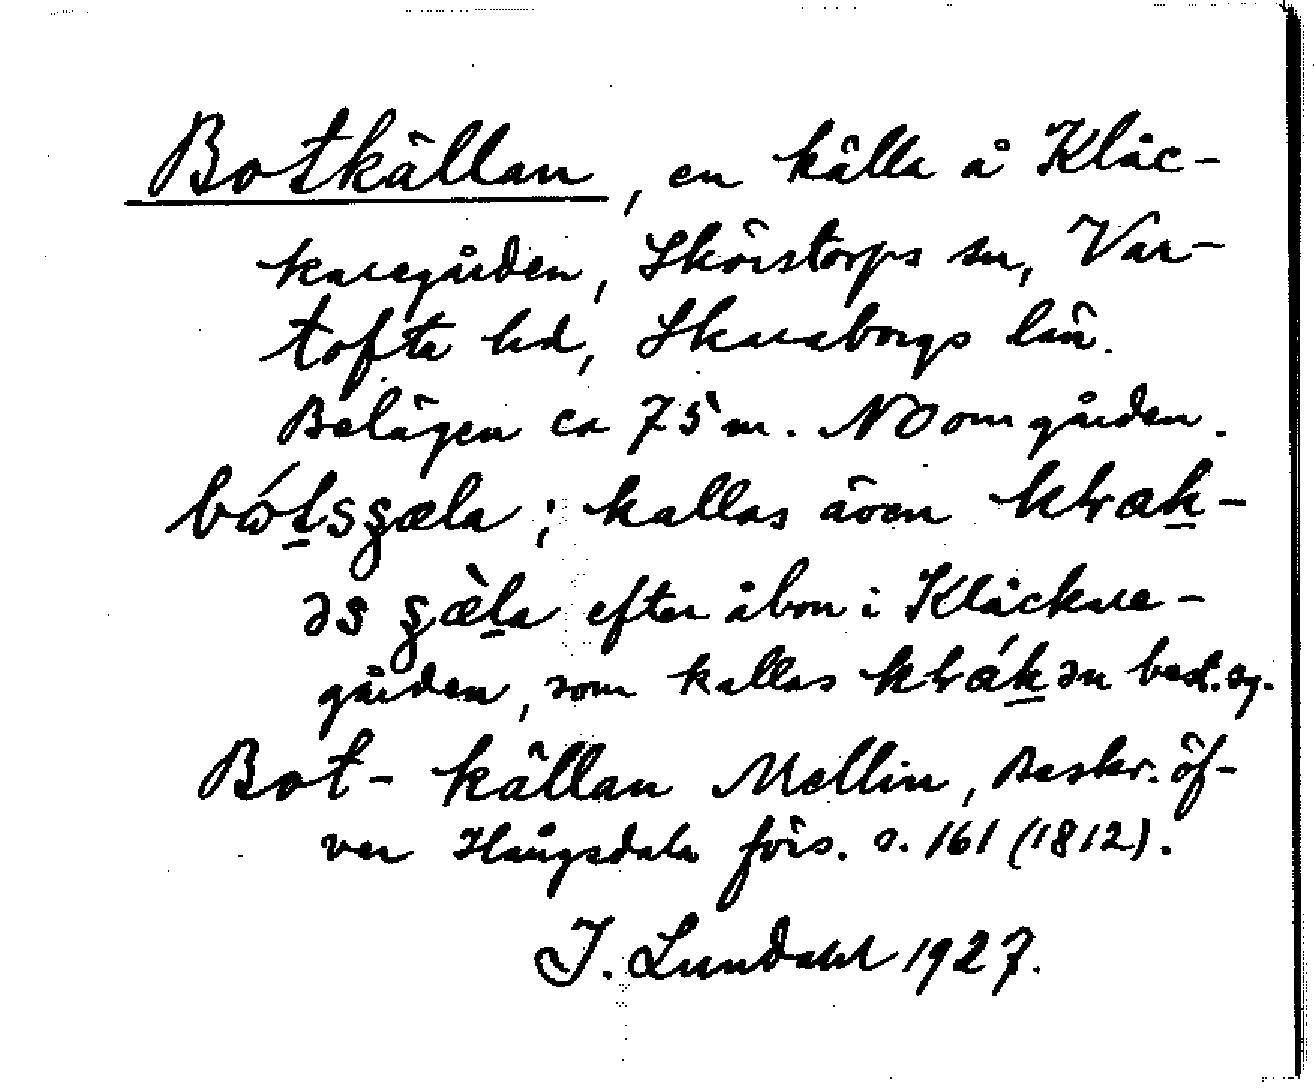 Botkällan, en källa å Klåc-
karegården, Skörstorps sn, Var-
tofta hd, Skaraborgs län.
Belägen ca 75 m. NO om gården.
kallas även
efter åbon i Klåckare-
gården, som kallas best. sg.
Bot-källan Mellin, Beskr. öf-
ver Hångsdala förs. s. 161 (1812).
I. Lundahl 1927.